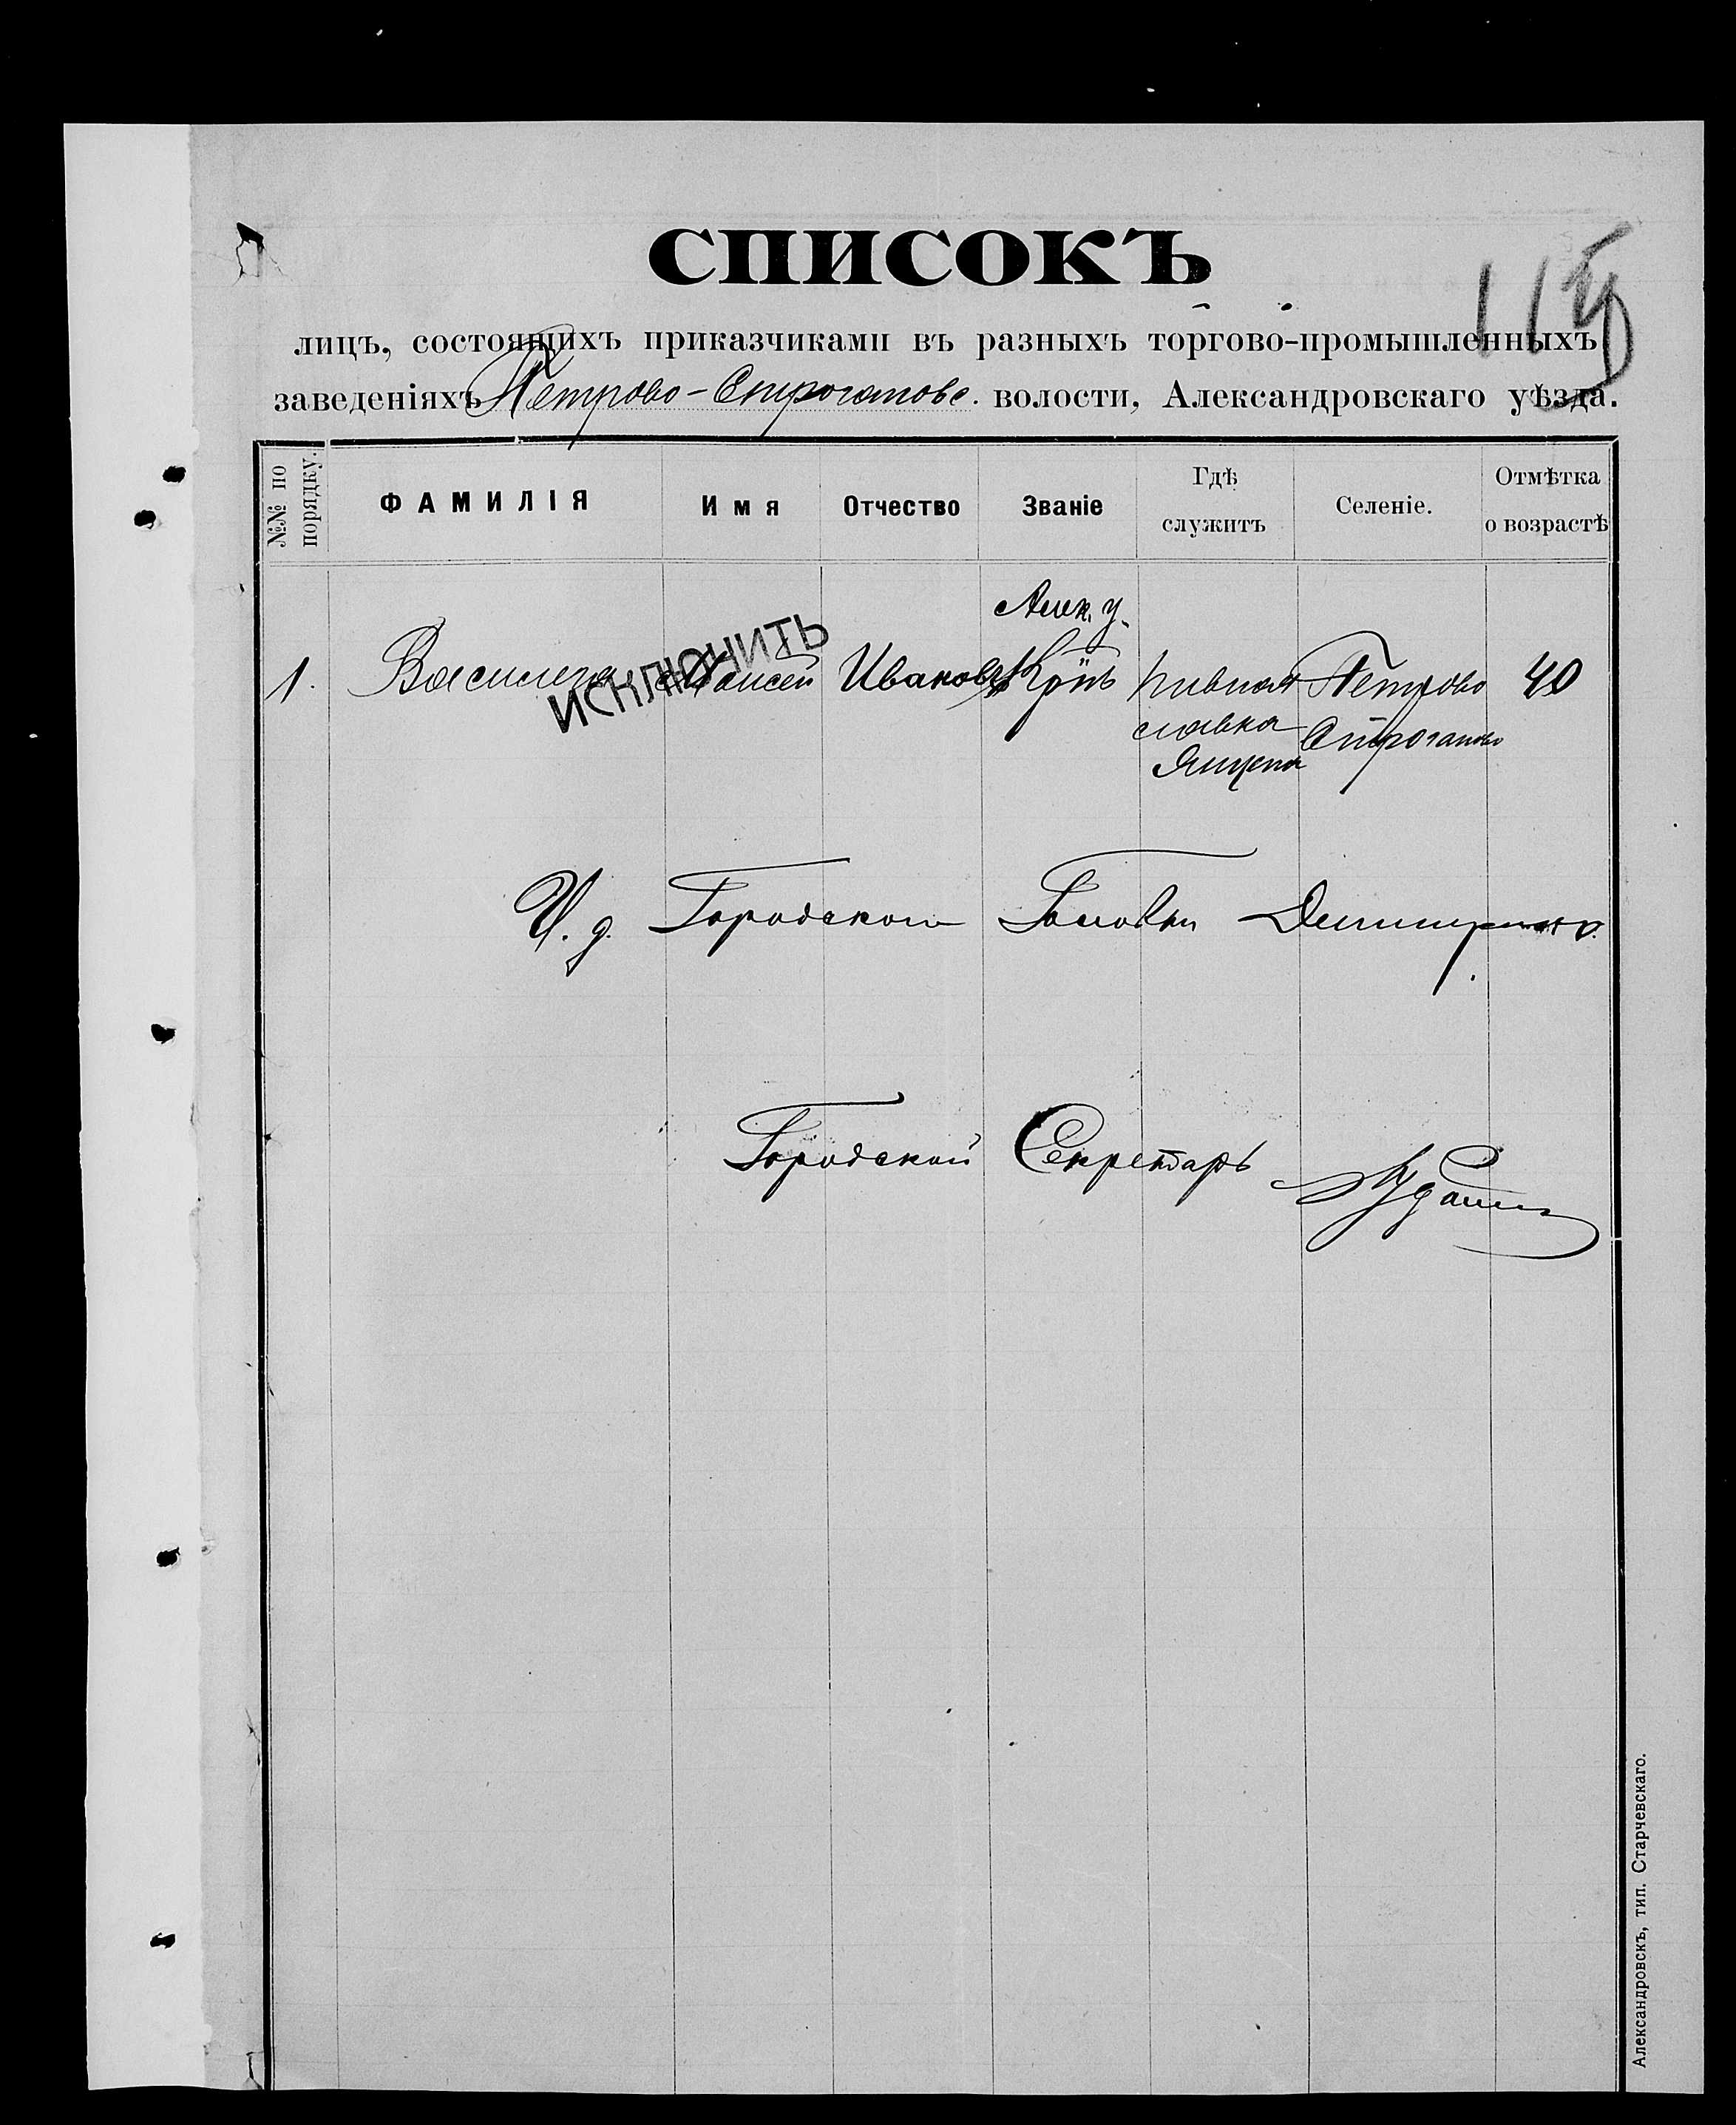 СПИСОКЪ
лицъ, состоящихъ приказчиками въ разныхъ торгово-промышленныхъ
заведеніяхъ Петрово-Строгановс. волости, Александровскаго уѣзда.
№№ по порядку.
ФАМИЛІЯ
Имя
Отчество
Званіе
Гдѣ
служитъ
Селеніе.
Отмѣтка
о возрастѣ
Алек. у.
1. Моисей Иванов Кр-нъ Пивная Петрово 40
ИСКЛЮЧИТЬ
лавка Строганово
И. д. Городского Головы
Городской Секретарь
Александровскъ, тип. Старчевскаго.